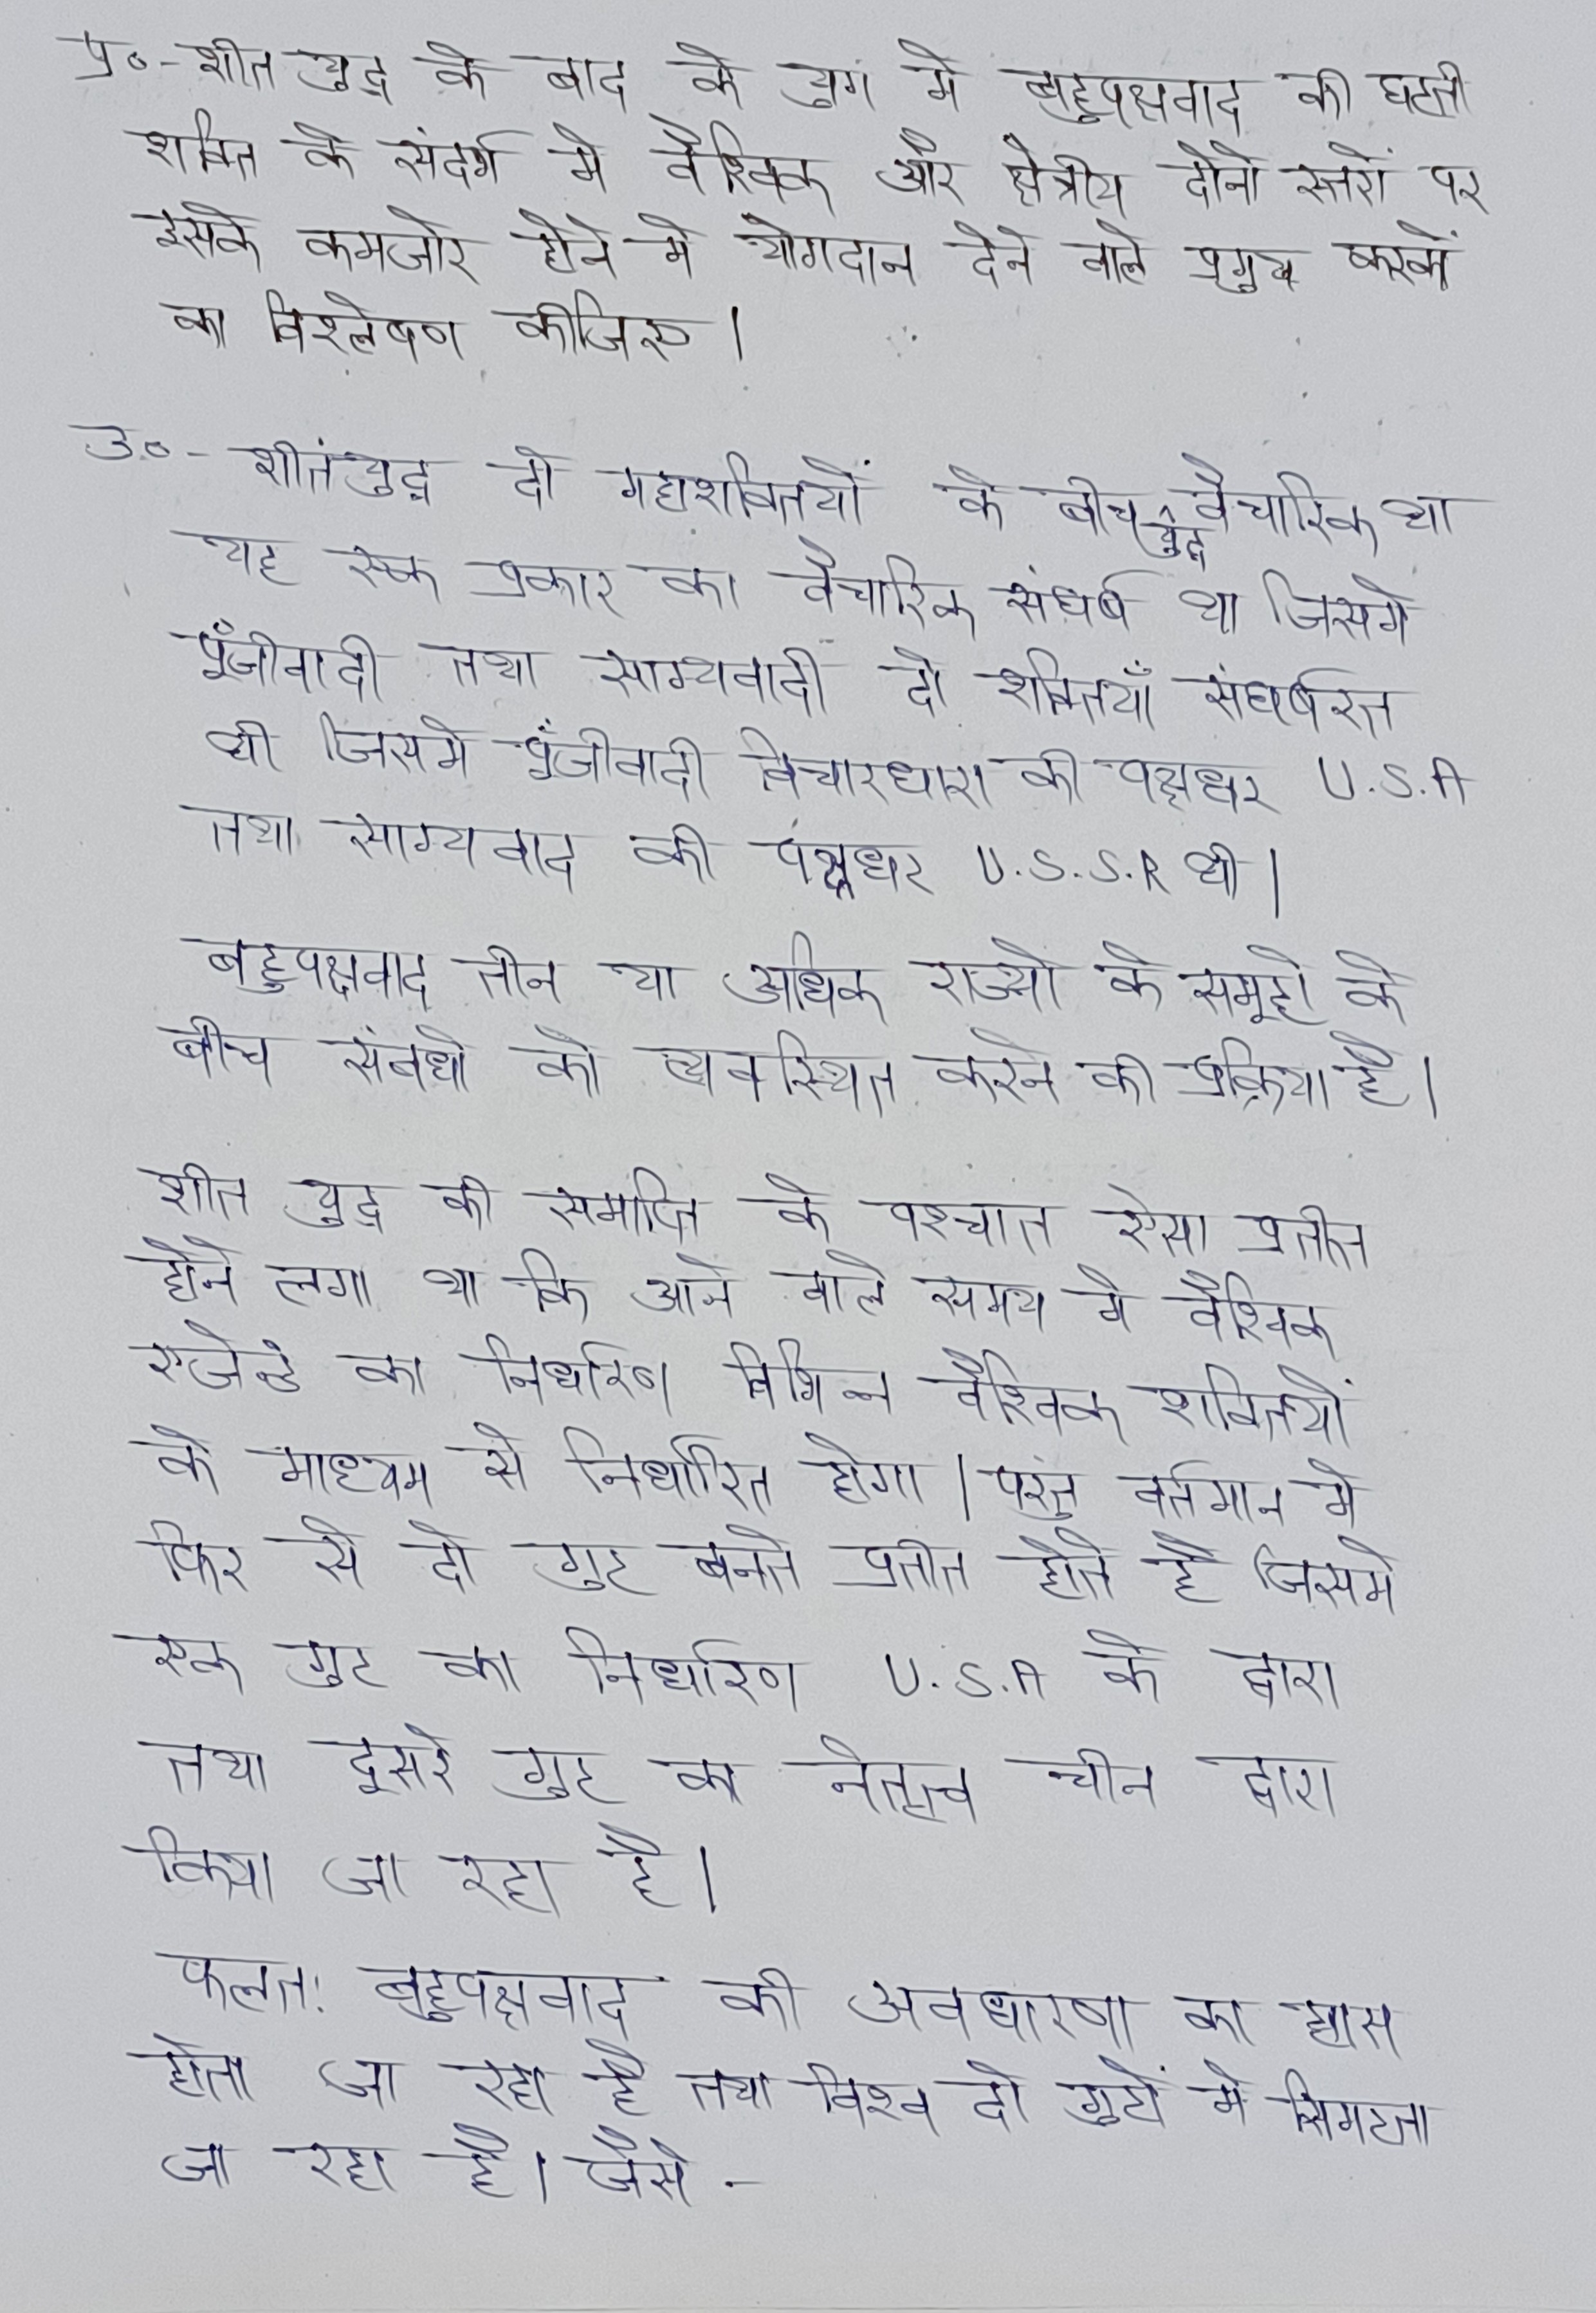 प्र०- शीत युद्ध के बाद के युग मे बहुपक्षवाद की घटती
शक्ति के संदर्भ मे वैश्विक और क्षेत्रीय दोनो स्तरों पर
इसके कमजोर होने मे योगदान देने वाले प्रमुख कारकों
का विश्लेषण कीजिए।
उ०- शीतयुद्ध दो महाशक्तियों के बीच वैचारिक युद्ध था
यह एक प्रकार का वैचारिक संघर्ष था जिसमे
पूँजीवादी तथा साम्यवादी दो शक्तियाँ संघर्षरत
थी जिसमे पूँजीवादी विचारधारा की पक्षधर U.S.A
तथा साम्यवाद की पक्षधर U.S.S.R थी।
बहुपक्षवाद तीन या अधिक राज्यो के समूहो के
बीच संबधो को व्यवस्थित करने की प्रक्रिया है।
शीत युद्ध की समाप्ति के पश्चात ऐसा प्रतीत
होने लगा था कि आने वाले समय मे वैश्विक
एजेन्डे का निर्धारण विभिन्न वैश्विक शक्तियों
के माध्यम से निर्धारित होगा। परंतु वर्तमान मे
फिर से दो गुट बनते प्रतीत होते है जिसमे
एक गुट का निर्धारण U.S.A के द्वारा
तथा दूसरे गुट का नेतृत्व चीन द्वारा
किया जा रहा है।
फलतः बहुपक्षवाद की अवधारणा का ह्रास
होता जा रहा है तथा विश्व दो गुटों मे सिमटता
जा रहा है। जैसे -